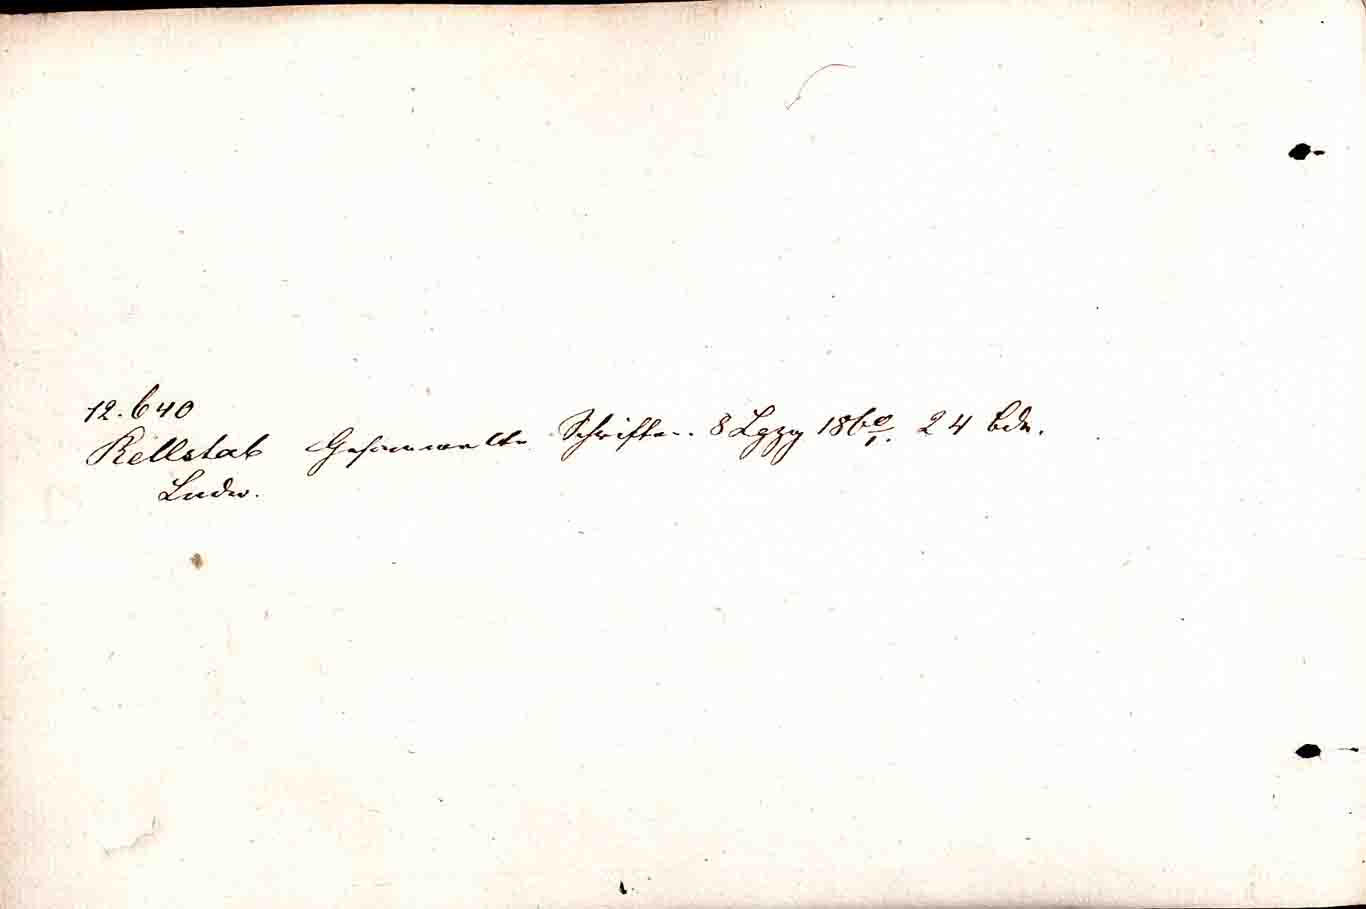 12.640
Rellstab Gesammelte Schriften. 8 Lpzg 1860/1. 24 Bde.
Ludw.